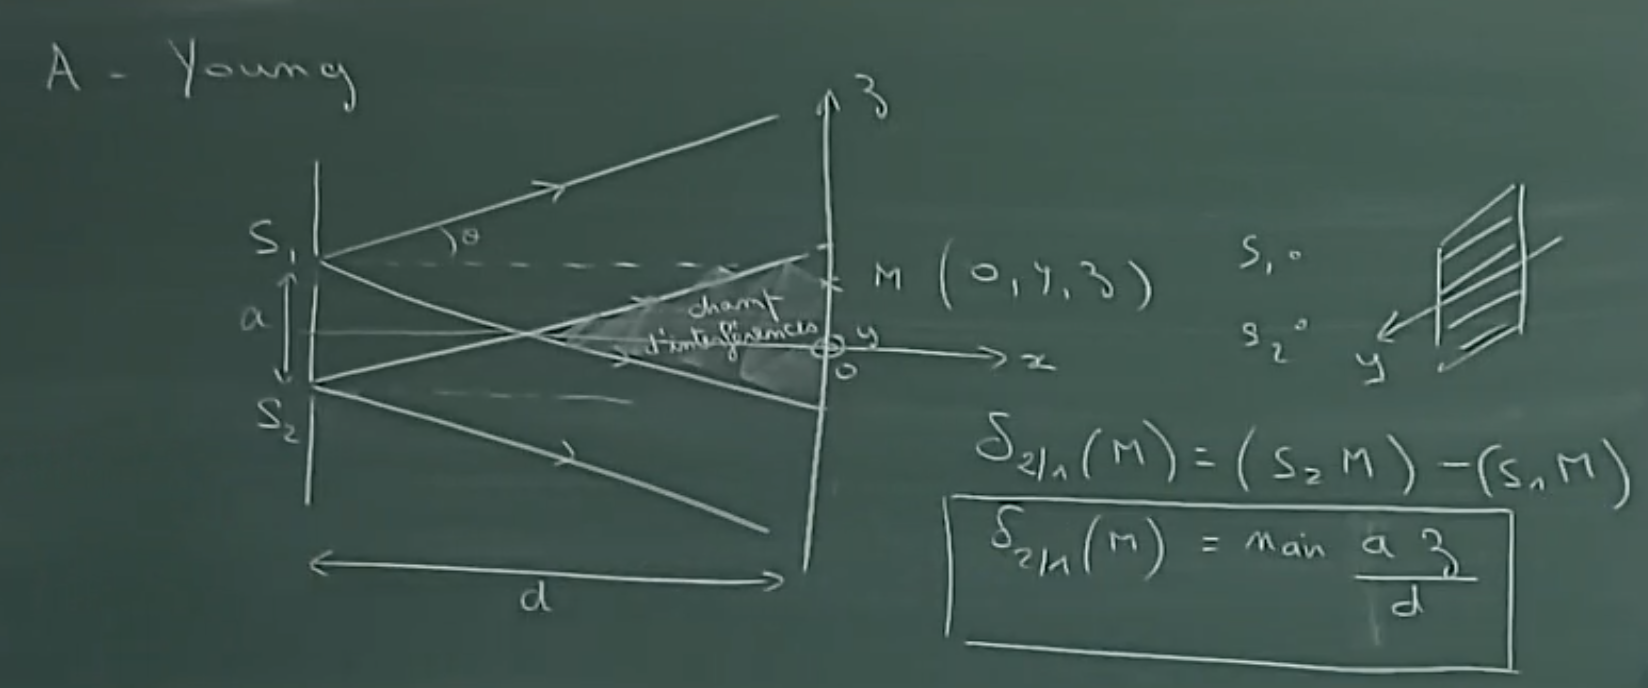 A - Young
z
S₁
θ
a
M (0, y, z)
champ
d'interférences
y
O
x
S₂
d
S₁
S₂
y
δ₂/₁(M) = (S₂M) - (S₁M)
δ₂/₁(M) = nair a z / d